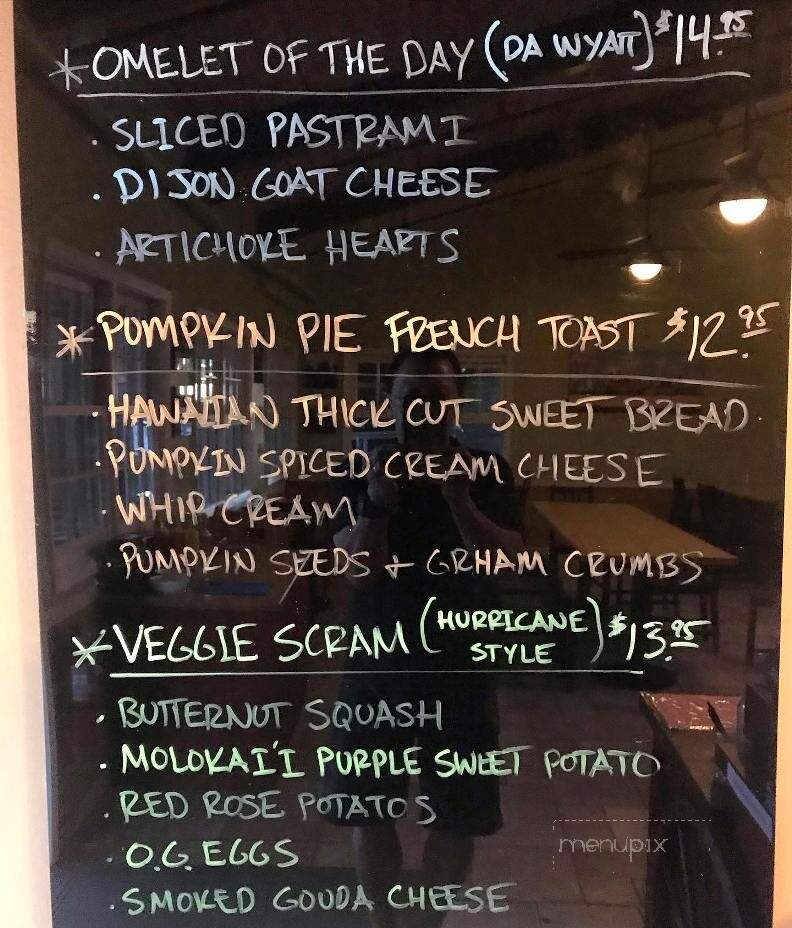 * OMELET OF THE DAY (DA WYATT) $14.95
· SLICED PASTRAMI
· DIJON GOAT CHEESE
· ARTICHOKE HEARTS
* PUMPKIN PIE FRENCH TOAST $12.95
· HAWAIIAN THICK CUT SWEET BREAD
· PUMPKIN SPICED CREAM CHEESE
· WHIP CREAM
· PUMPKIN SEEDS + GRHAM CRUMBS
* VEGGIE SCRAM (HURRICANE STYLE) $13.95
· BUTTERNUT SQUASH
· MOLOKAI'I PURPLE SWEET POTATO
· RED ROSE POTATOS
· O.G. EGGS
· SMOKED GOUDA CHEESE
menupix